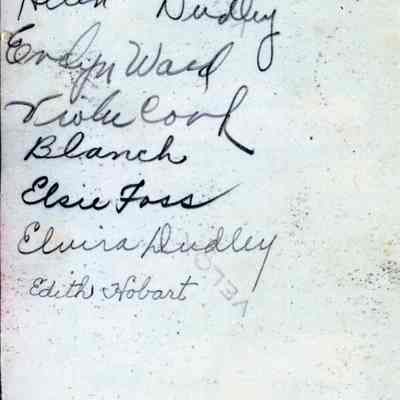 Helen Dudley
Evelyn Ward
Viola Cook
Blanch
Elsie Foss
Elvira Dudley
Edith Hobart
VELOX